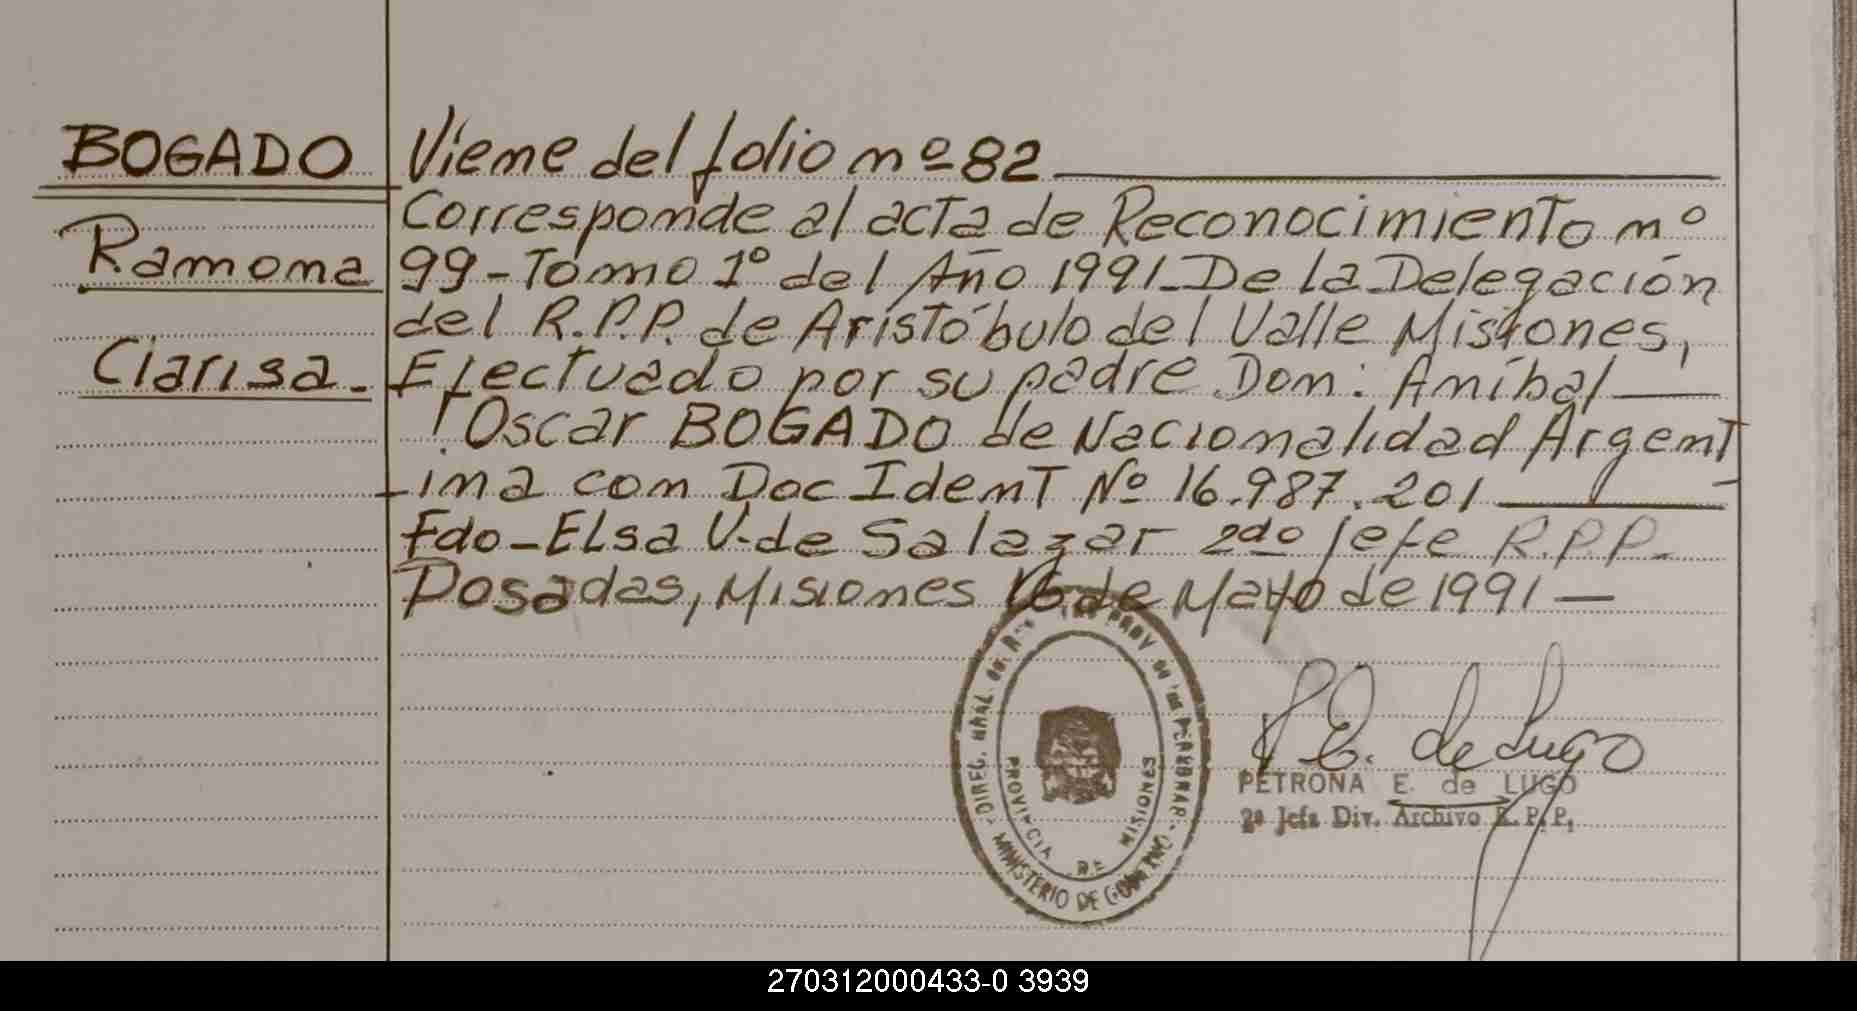 BOGADO
Ramona
Clarisa.
Viene del folio nº 82
Corresponde al acta de Reconocimiento nº
99-Tomo 1º del Año 1991-De la Delegación
del R.P.P. de Aristóbulo del Valle Misiones,
Efectuado por su padre Don: Aníbal
Oscar BOGADO de Nacionalidad Argent
-ina con Doc Ident Nº 16.987.201
Fdo-Elsa V. de Salazar 2do Jefe R.P.P.
Posadas, Misiones 16 de Mayo de 1991-
DIREC. GRAL. DE PROV. DE LAS PERSONAS
MINISTERIO DE GOBIERNO
PROVINCIA DE MISIONES
P E. de Lugo
PETRONA E. de LUGO
2ª Jefa Div. Archivo R. P. P.
270312000433-0 3939